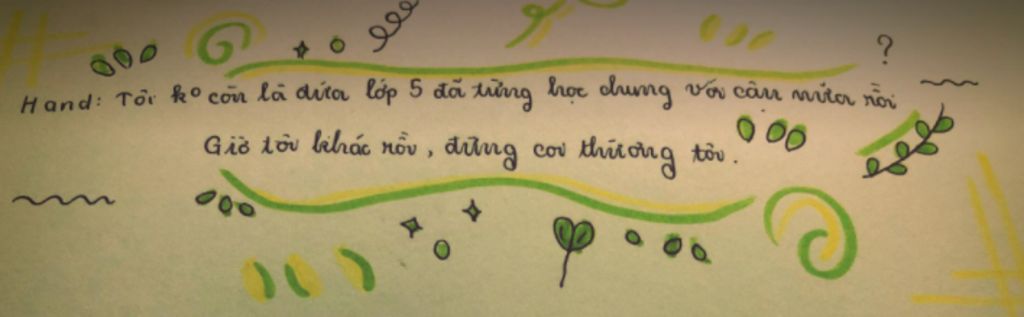 ?
Hand: Tôi ko còn là đứa lớp 5 đã từng học chung với cậu nữa rồi
Giờ tôi khác rồi, đừng coi thường tôi.